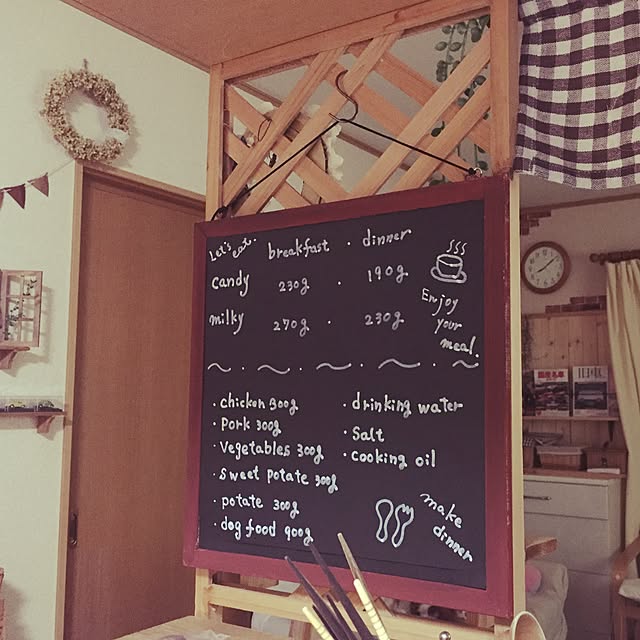 Let's eat.
breakfast · dinner
candy 230g · 190g
milky 270g · 230g
Enjoy
your
meal.
· chicken 300g
· Pork 300g
· Vegetables 300g
· sweet potate 300g
· potate 300g
· dog food 900g
· drinking water
· Salt
· cooking oil
make
dinner